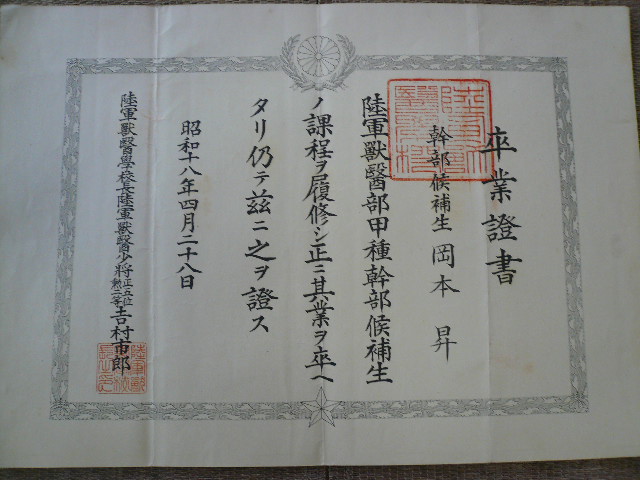 卒業證書
幹部候補生 岡本 昇
陸軍獸醫部甲種幹部候補生
ノ課程ヲ履修シ正ニ其業ヲ卒ヘ
タリ仍テ茲ニ之ヲ證ス
昭和十八年四月二十八日
陸軍獸醫學校長陸軍獸醫少將正五位勲二等吉村市郎